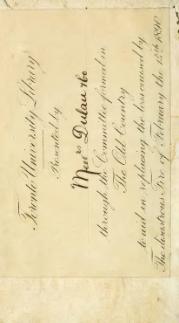 Toronto University Library
Presented by
Messrs Dulau & Co
through the Committee formed in
The Old Country
to aid in replacing the loss caused by
The disastrous Fire of February the 14th 1890